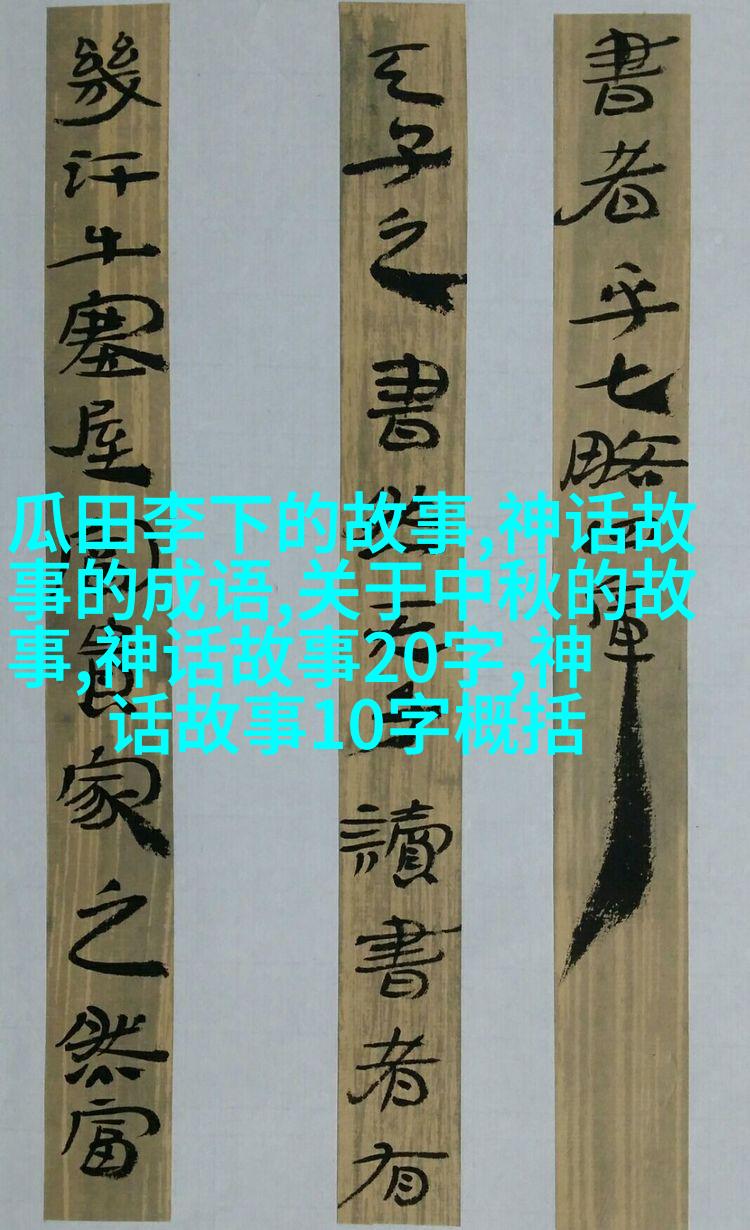 書者乎七略四庫
天子之書然天子讀書者有
幾汗牛塞屋富貴家之然富
瓜田李下的故事,神话故
事的成语,关于中秋的故
事,神话故事20字,神
话故事10字概括